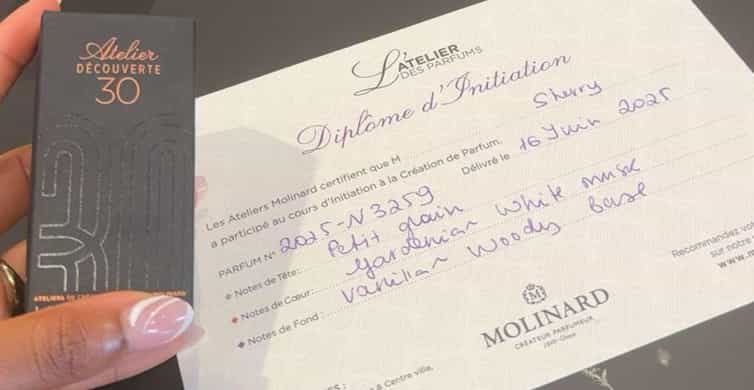 Atelier
DÉCOUVERTE
30
L'ATELIER
DES PARFUMS
Diplôme d'Initiation
Les Ateliers Molinard certifient que M Sherry
a participé au cours d'Initiation à la Création de Parfum. Délivré le 16 Juin 2025
PARFUM N° 2025-N3259
Notes de Tête: Petit grain
Notes de Cœur: Gardenia White musk
Notes de Fond: Vanilla Woody Base
MOLINARD
CRÉATEUR PARFUMEUR
Recommandez vot
sur notre
www.m
& Centre ville,